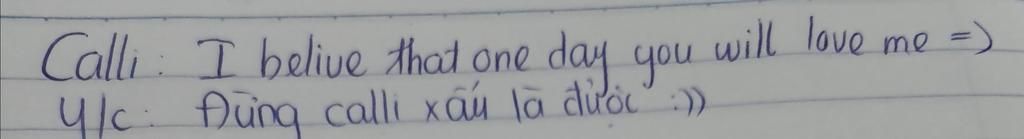 Calli: I belive that one day you will love me =)
Y/c: Đừng calli xấu là được :))